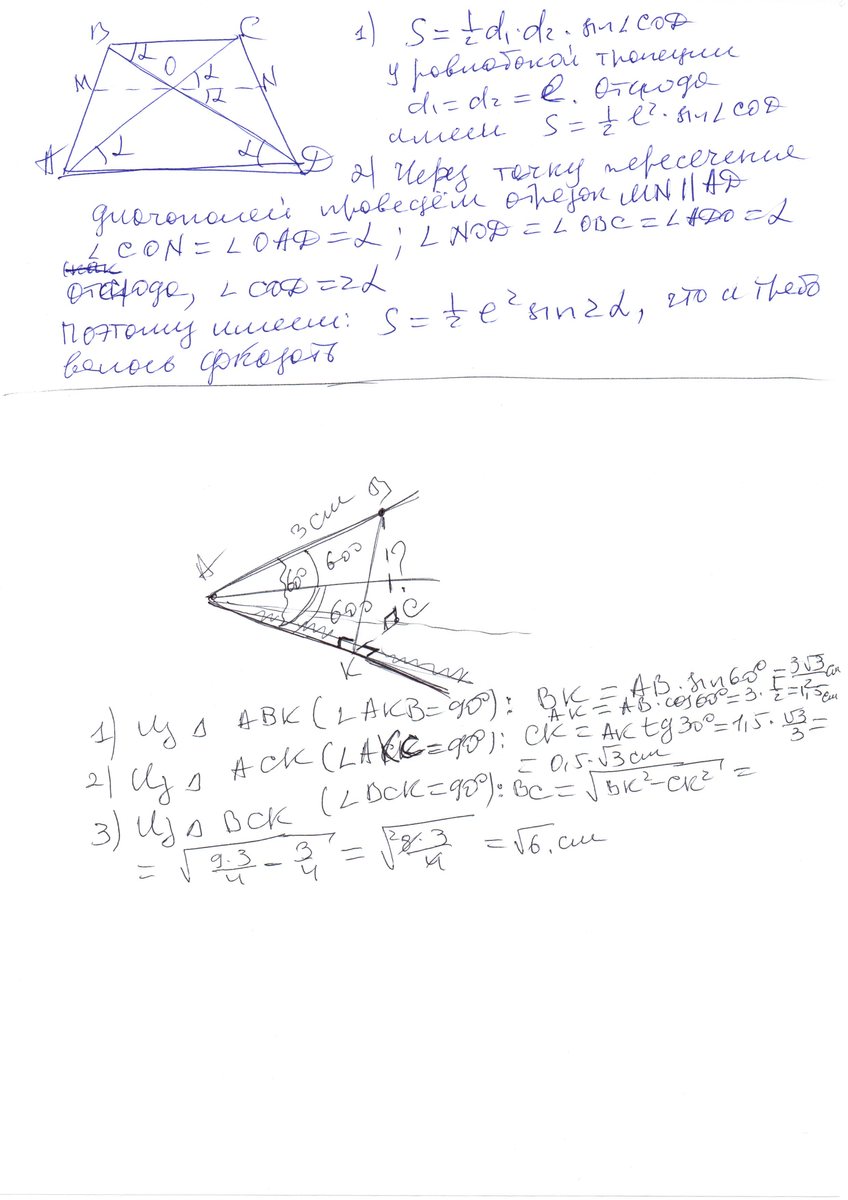 B C
α
O
α
M N
α
A α α D
1) S = 1/2 d₁·d₂·sin∠COD
У равнобокой трапеции
d₁ = d₂ = ℓ. Отсюда
имеем S = 1/2 ℓ²·sin∠COD
2) Через точку пересечения
диагоналей проведём отрезок MN || AD
∠CON = ∠OAD = α; ∠NOD = ∠OBC = ∠ADO = α
отсюда, ∠COD = 2α
Поэтому имеем: S = 1/2 ℓ² sin2α, что и требо
валось доказать
3 см B
A
60° 60° ?
60° C
K
1) Из △ ABK (∠AKB = 90°): BK = AB·sin60° = 3√3/2 см
AK = AB·cos60° = 3·1/2 = 1,5 см
2) Из △ ACK (∠AKC = 90°): CK = AK tg30° = 1,5·√3/3 =
= 0,5·√3 см
3) Из △ BCK (∠BCK = 90°): BC = √(BK² – CK²) =
= √(9·3/4 – 3/4) = √(8·3/4) = √6 . см